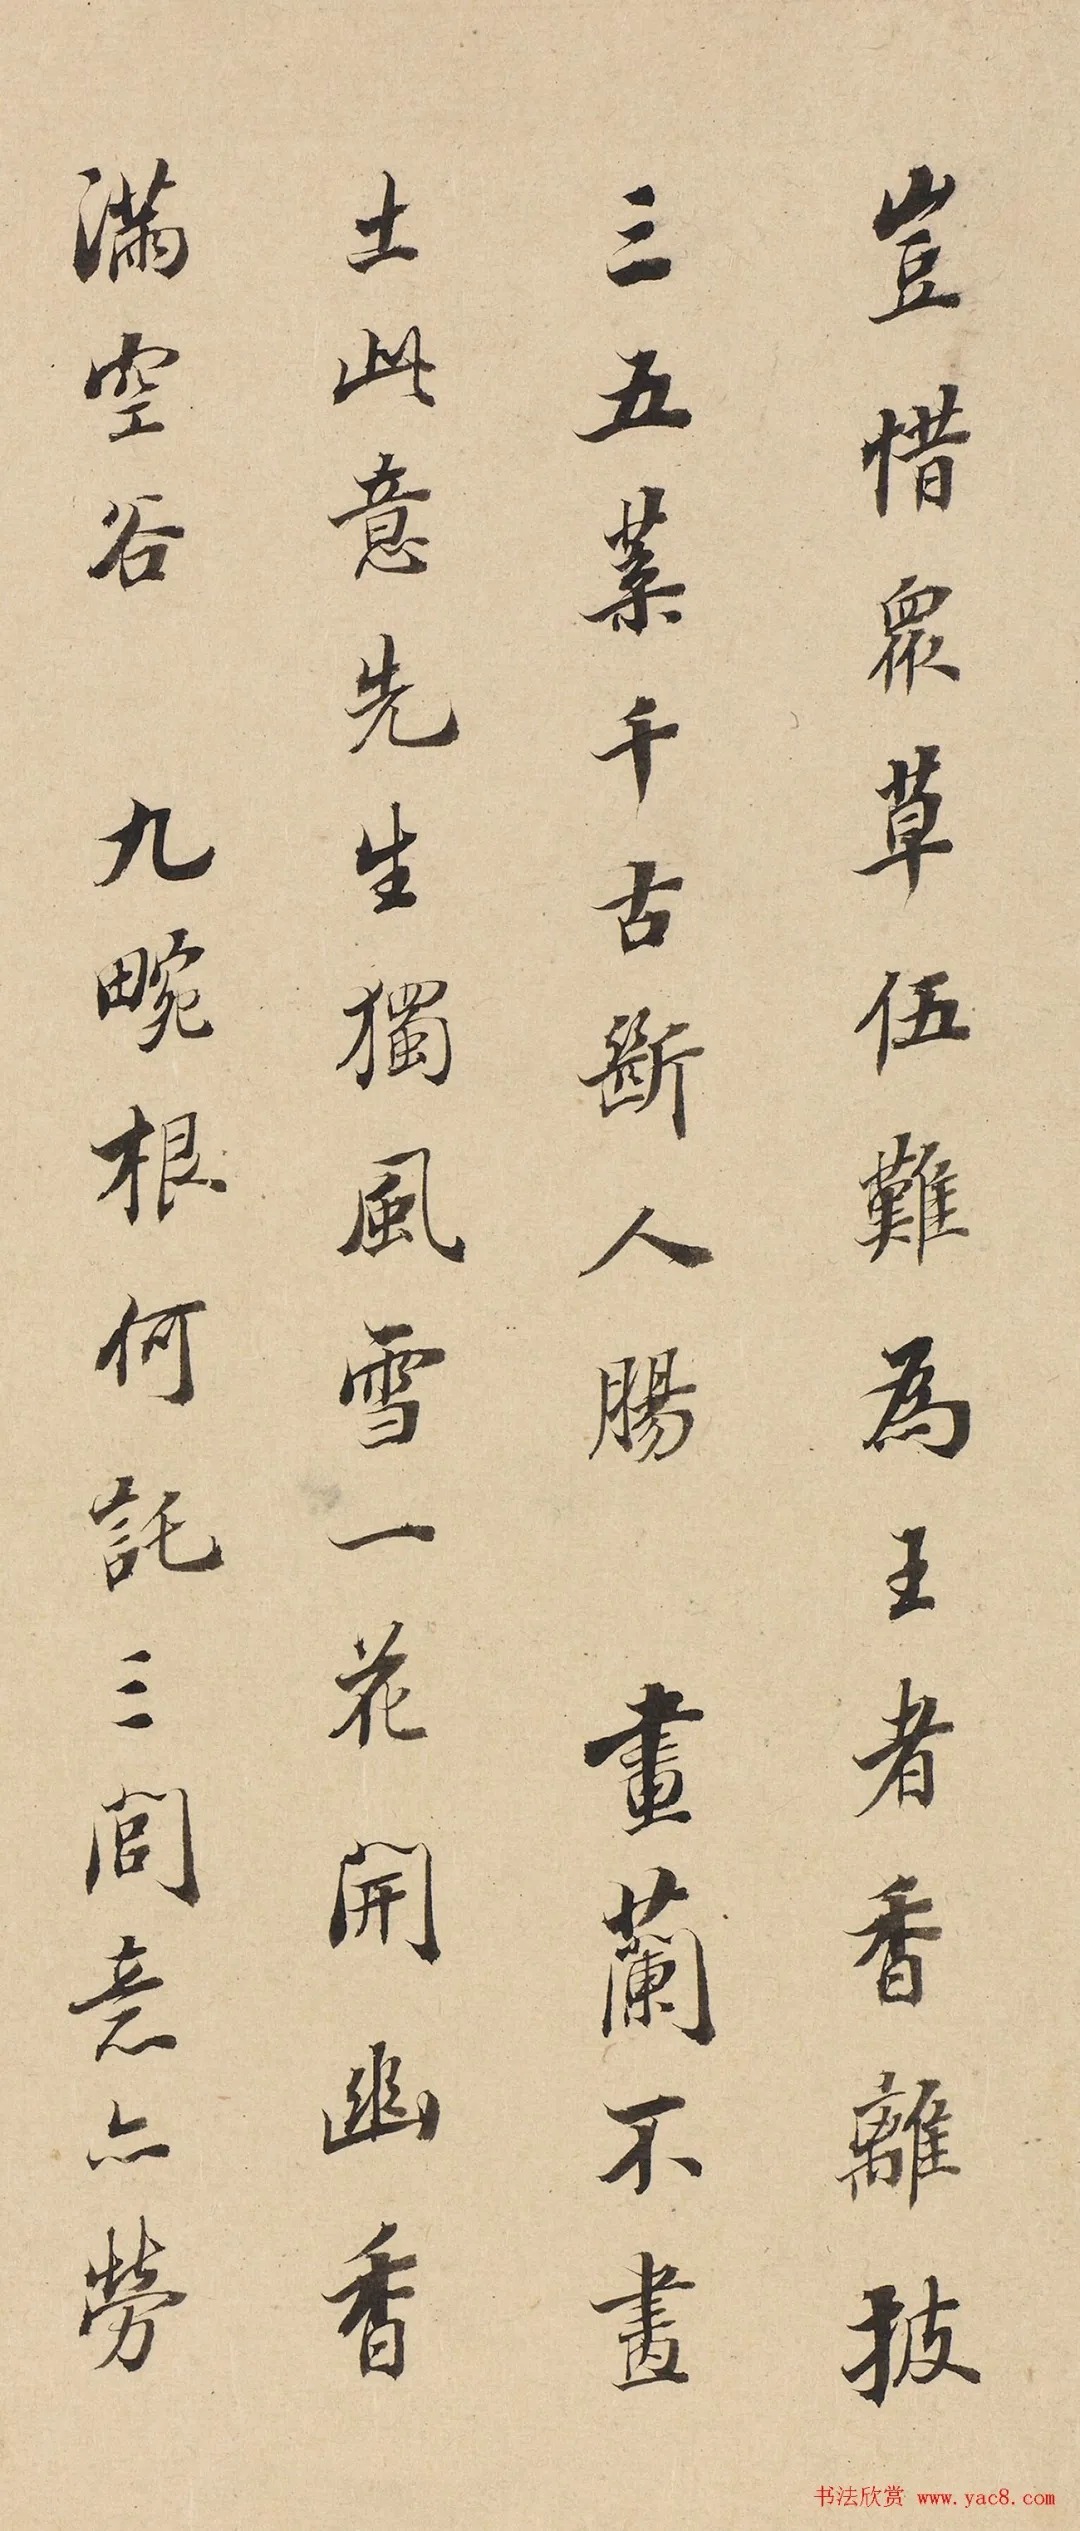 豈惜眾草伍難為王者香離披
三五葉千古斷人腸 畫蘭不畫
土此意先生獨風雪一花開幽香
滿空谷 九畹根何託三閭意亦勞
书法欣赏 www.yac8.com